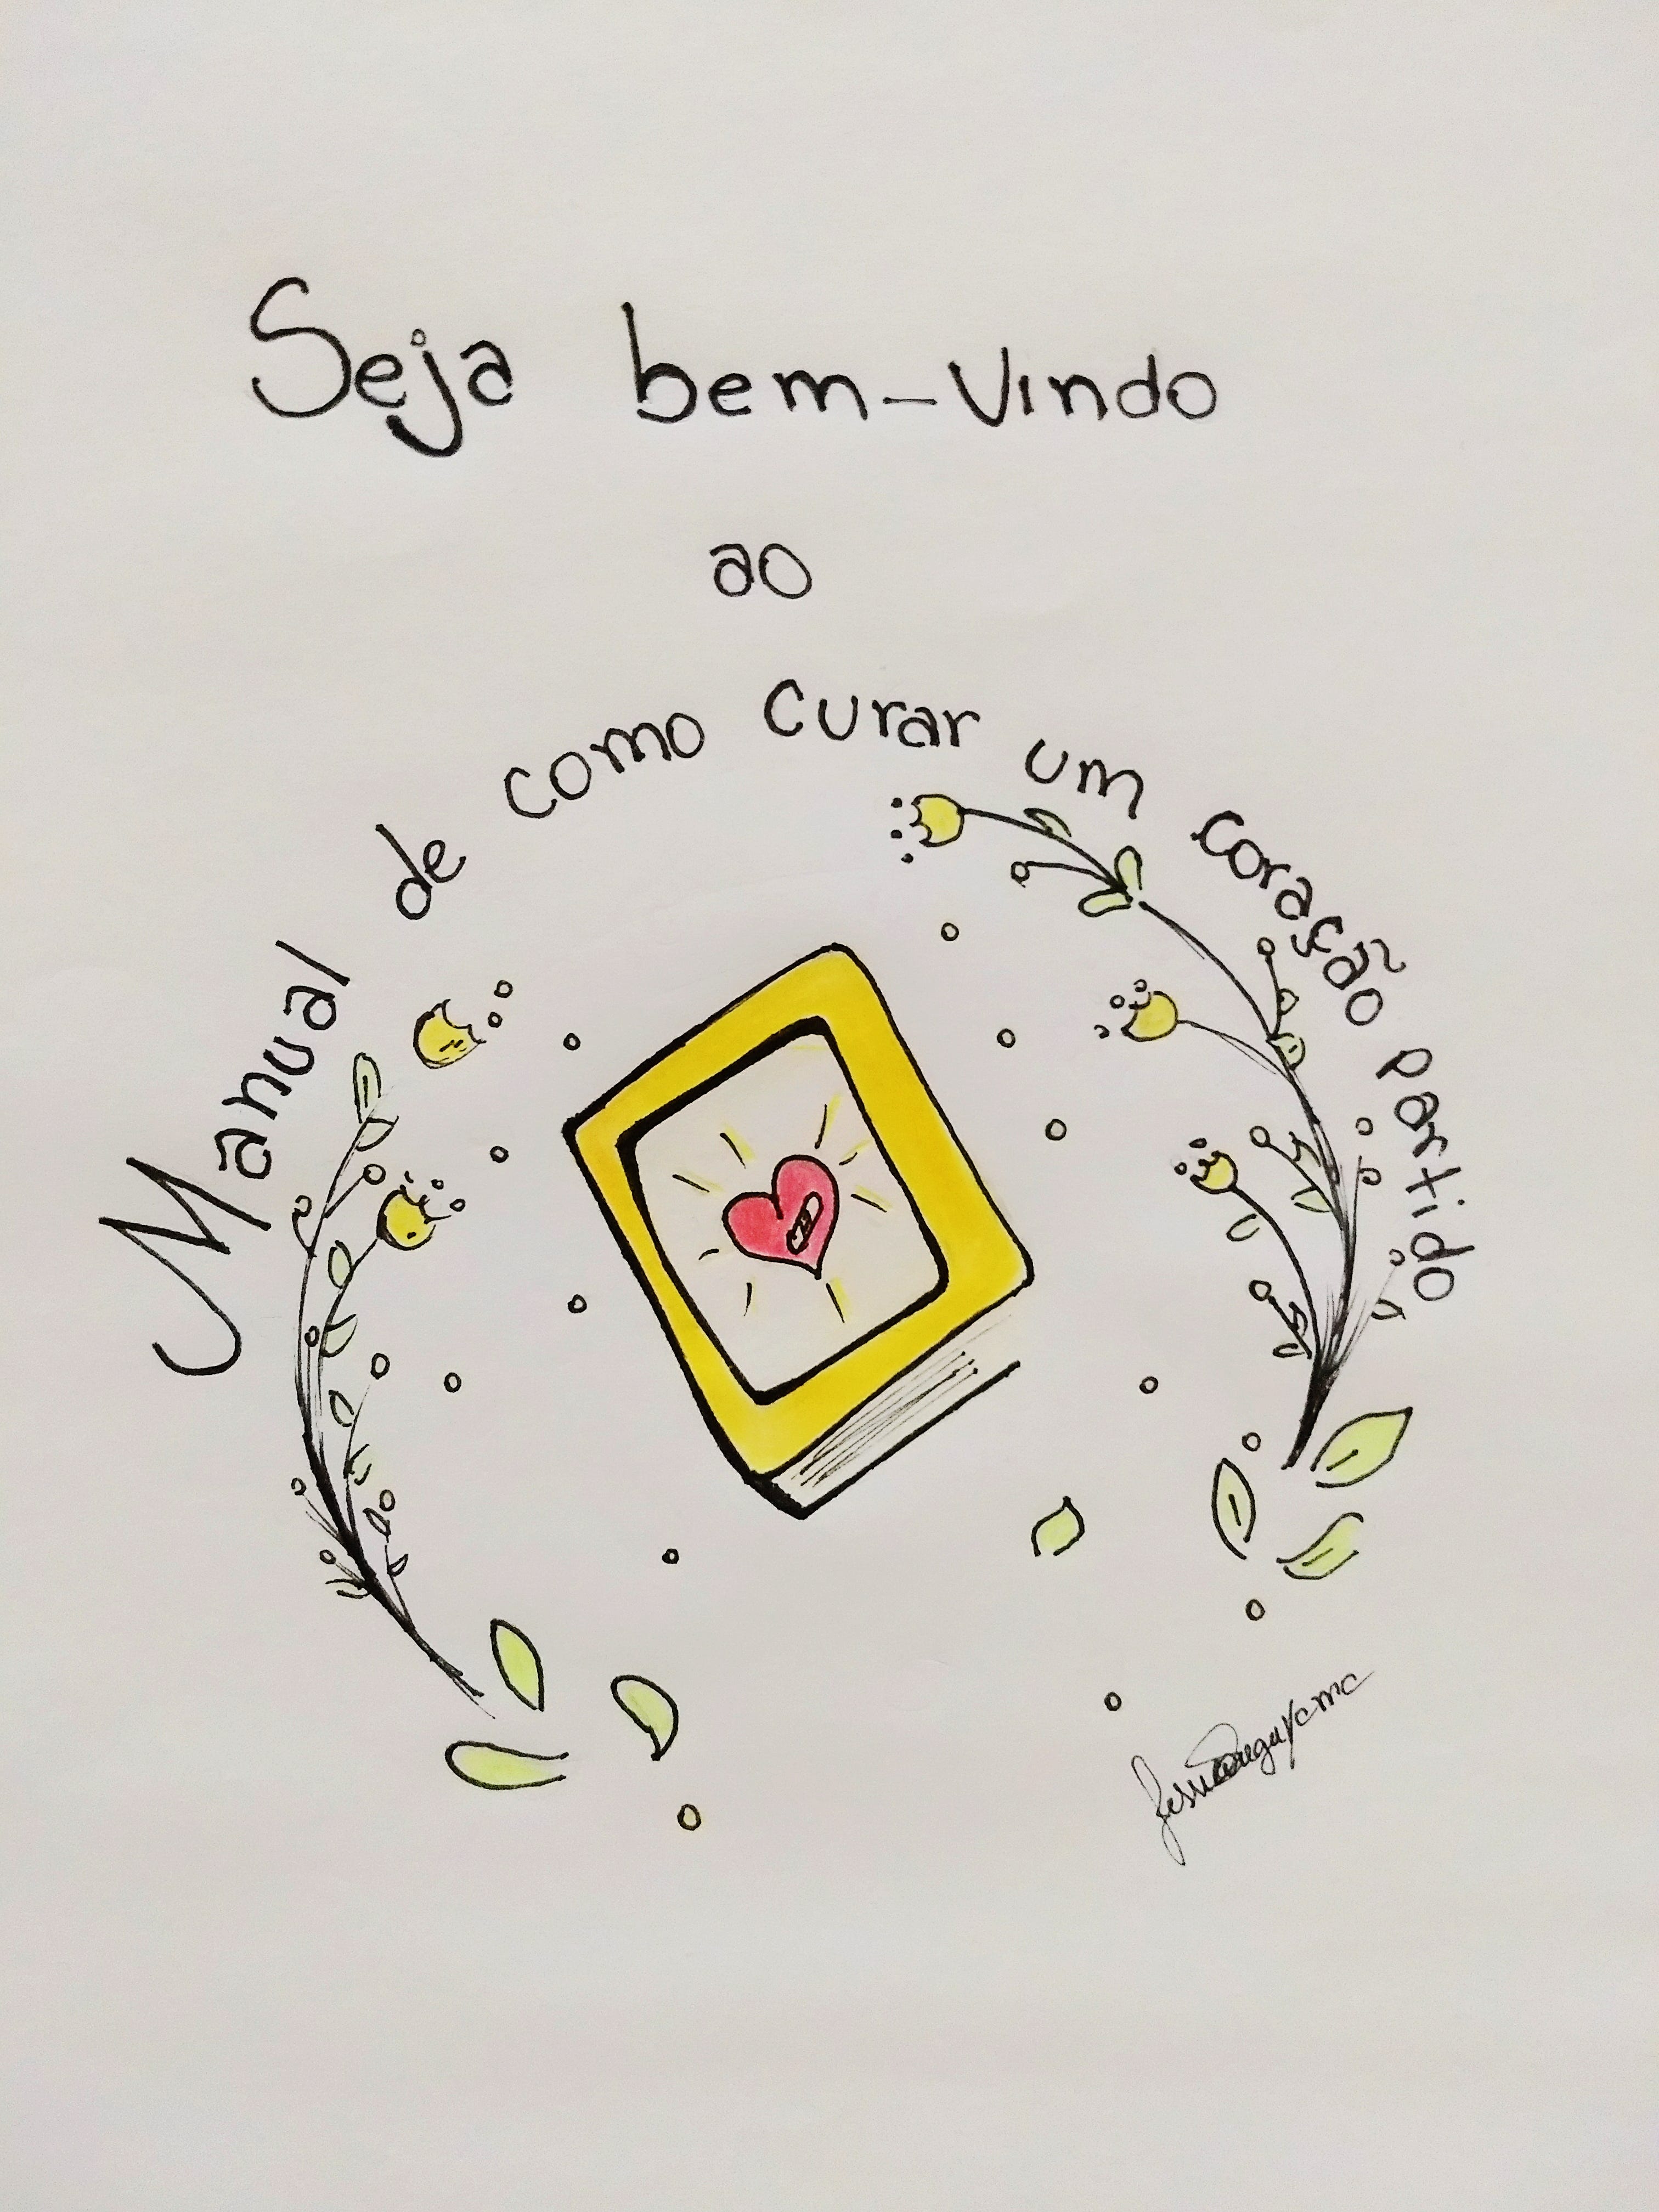 Seja bem-vindo
ao
Manual de como curar um coração partido